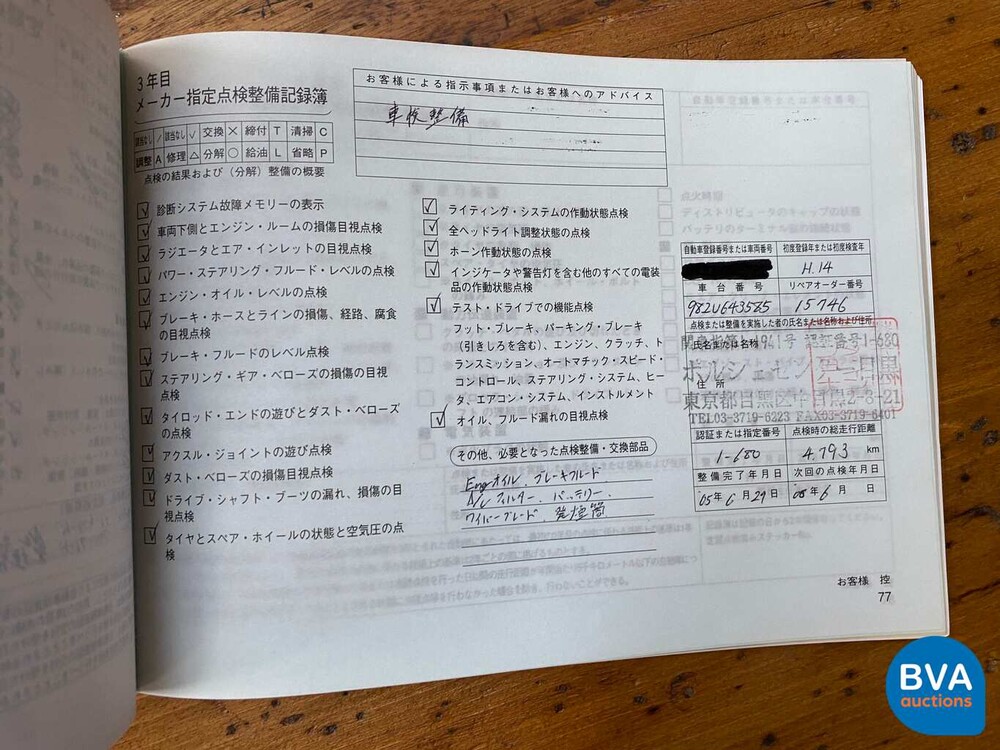 3年目
メーカー指定点検整備記録簿
該当なし / 該当なし ✓ 交換 × 締付 T 清掃 C
調整 A 修理 △ 分解 ○ 給油 L 省略 P
点検の結果および（分解）整備の概要
お客様による指示事項またはお客様へのアドバイス
車検整備
診断システム故障メモリーの表示
車両下側とエンジン・ルームの損傷目視点検
ラジエータとエア・インレットの目視点検
パワー・ステアリング・フルード・レベルの点検
エンジン・オイル・レベルの点検
ブレーキ・ホースとラインの損傷、経路、腐食
の目視点検
ブレーキ・フルードのレベル点検
ステアリング・ギア・ベローズの損傷の目視
点検
タイロッド・エンドの遊びとダスト・ベローズ
の点検
アクスル・ジョイントの遊び点検
ダスト・ベローズの損傷目視点検
ドライブ・シャフト・ブーツの漏れ、損傷の目
視点検
タイヤとスペア・ホイールの状態と空気圧の点
検
ライティング・システムの作動状態点検
全ヘッドライト調整状態の点検
ホーン作動状態の点検
インジケータや警告灯を含む他のすべての電装
品の作動状態点検
テスト・ドライブでの機能点検
フット・ブレーキ、パーキング・ブレーキ
（引きしろを含む）、エンジン、クラッチ、ト
ランスミッション、オートマチック・スピード・
コントロール、ステアリング・システム、ヒー
タ、エアコン・システム、インストルメント
オイル、フルード漏れの目視点検
その他、必要となった点検整備・交換部品
Engオイル、ブレーキフルード
A/Cフィルター、バッテリー、
ワイパーブレード、発煙筒
自動車登録番号または車両番号 初度登録年または初度検査年
H.14
車台番号 リペアオーダー番号
982U643585 15746
点検または整備を実施した者の氏名または名称および住所
氏名または名称
認証番号1-680
ポルシェセンター目黒
住所
東京都目黒区中目黒2-8-21
TEL03-3719-6223 FAX03-3719-6401
認証または指定番号 点検時の総走行距離
1-680 4,793 km
整備完了年月日 次回の点検年月日
05年6月29日 08年6月 日
お客様 控
77
自動車登録番号または車台番号
点火時期
ディストリビュータのキャップの状態
バッテリのターミナル部の接続状態
BVA
auctions